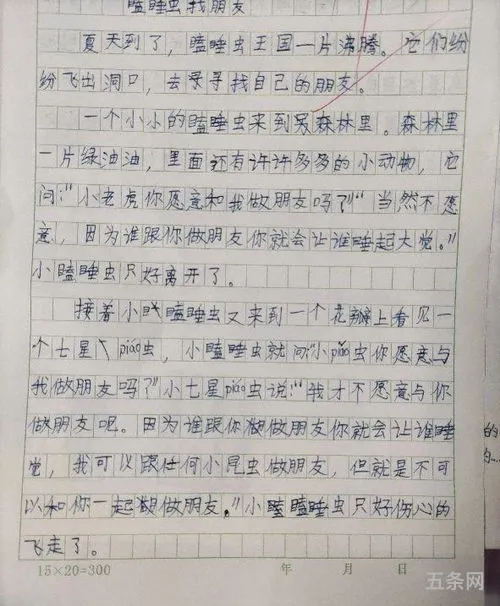 瞌睡虫找朋友
夏天到了，瞌睡虫王国一片沸腾。它们纷
纷飞出洞口，去寻找自己的朋友。
一个小小的瞌睡虫来到森林里。森林里
一片绿油油，里面还有许许多多的小动物，它
问：“小老虎你愿意和我做朋友吗？”“当然不愿
意，因为谁跟你做朋友你就会让谁睡起大觉。”
小瞌睡虫只好离开了。
接着小瞌睡虫又来到一个花瓣上看见一
个七星piáo虫，小瞌睡虫就问“小piáo虫你愿意与
我做朋友吗？”小七星piáo虫说：“我才不愿意与你
做朋友呢。因为谁跟你做朋友你就会让谁睡
觉，我可以跟任何小昆虫做朋友，但就是不可
以和你一起做朋友。”小瞌瞌睡虫只好伤心的
飞走了。
15×20=300 年 月 日
的
五条网